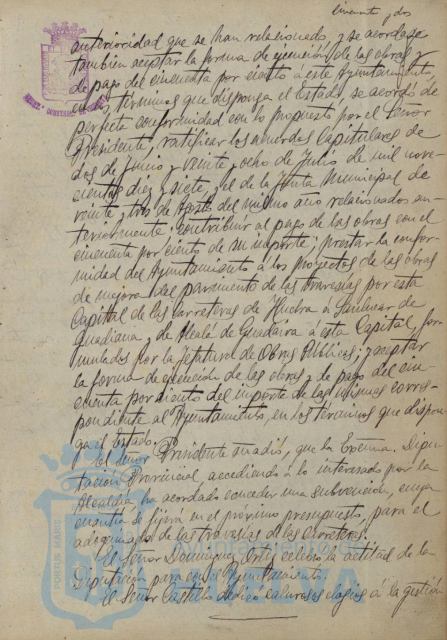 cincuenta y dos
anterioridad que se han relacionado, y se acordase
también aceptar la forma de ejecución de las obras y
de pago del cincuenta por ciento a este Ayuntamiento,
en los términos que disponga el Estado se acordó de
perfecta conformidad con lo propuesto por el Señor
Presidente, ratificar los acuerdos Capitulares de
dos de Junio y veinte y ocho de Julio de mil nove-
cientos diez y siete, y el de la Junta Municipal de
veinte y tres de Agosto del mismo año relacionados an-
teriormente; contribuir al pago de las obras con el
cincuenta por ciento de su importe; prestar la confor-
midad del Ayuntamiento á los proyectos de las obras
de mejora del pavimento de las travesías por esta
Capital de las carreteras de Huelva á Sanlucar de
Guadiana y de Alcalá de Guadaira á esta Capital, for-
mulados por la Jefatura de Obras Públicas; y aceptar
la forma de ejecución de las obras y de pago del cin-
cuenta por ciento del importe de las mismas corres-
pondiente al Ayuntamiento, en los términos que dispon-
ga el Estado.
El Señor Presidente añadió, que la Excma. Dipu-
tación Provincial, accediendo á lo interesado por la
Alcaldía, ha acordado conceder una subvención, cuya
cuantía se fijará en el próximo presupuesto, para el
adoquinado de las travesías de las Carreteras.
El Señor Domínguez Ortiz celebró la actitud de la
Diputación para con el Ayuntamiento.
El Señor Castillo dedicó calurosos elogios á la gestión